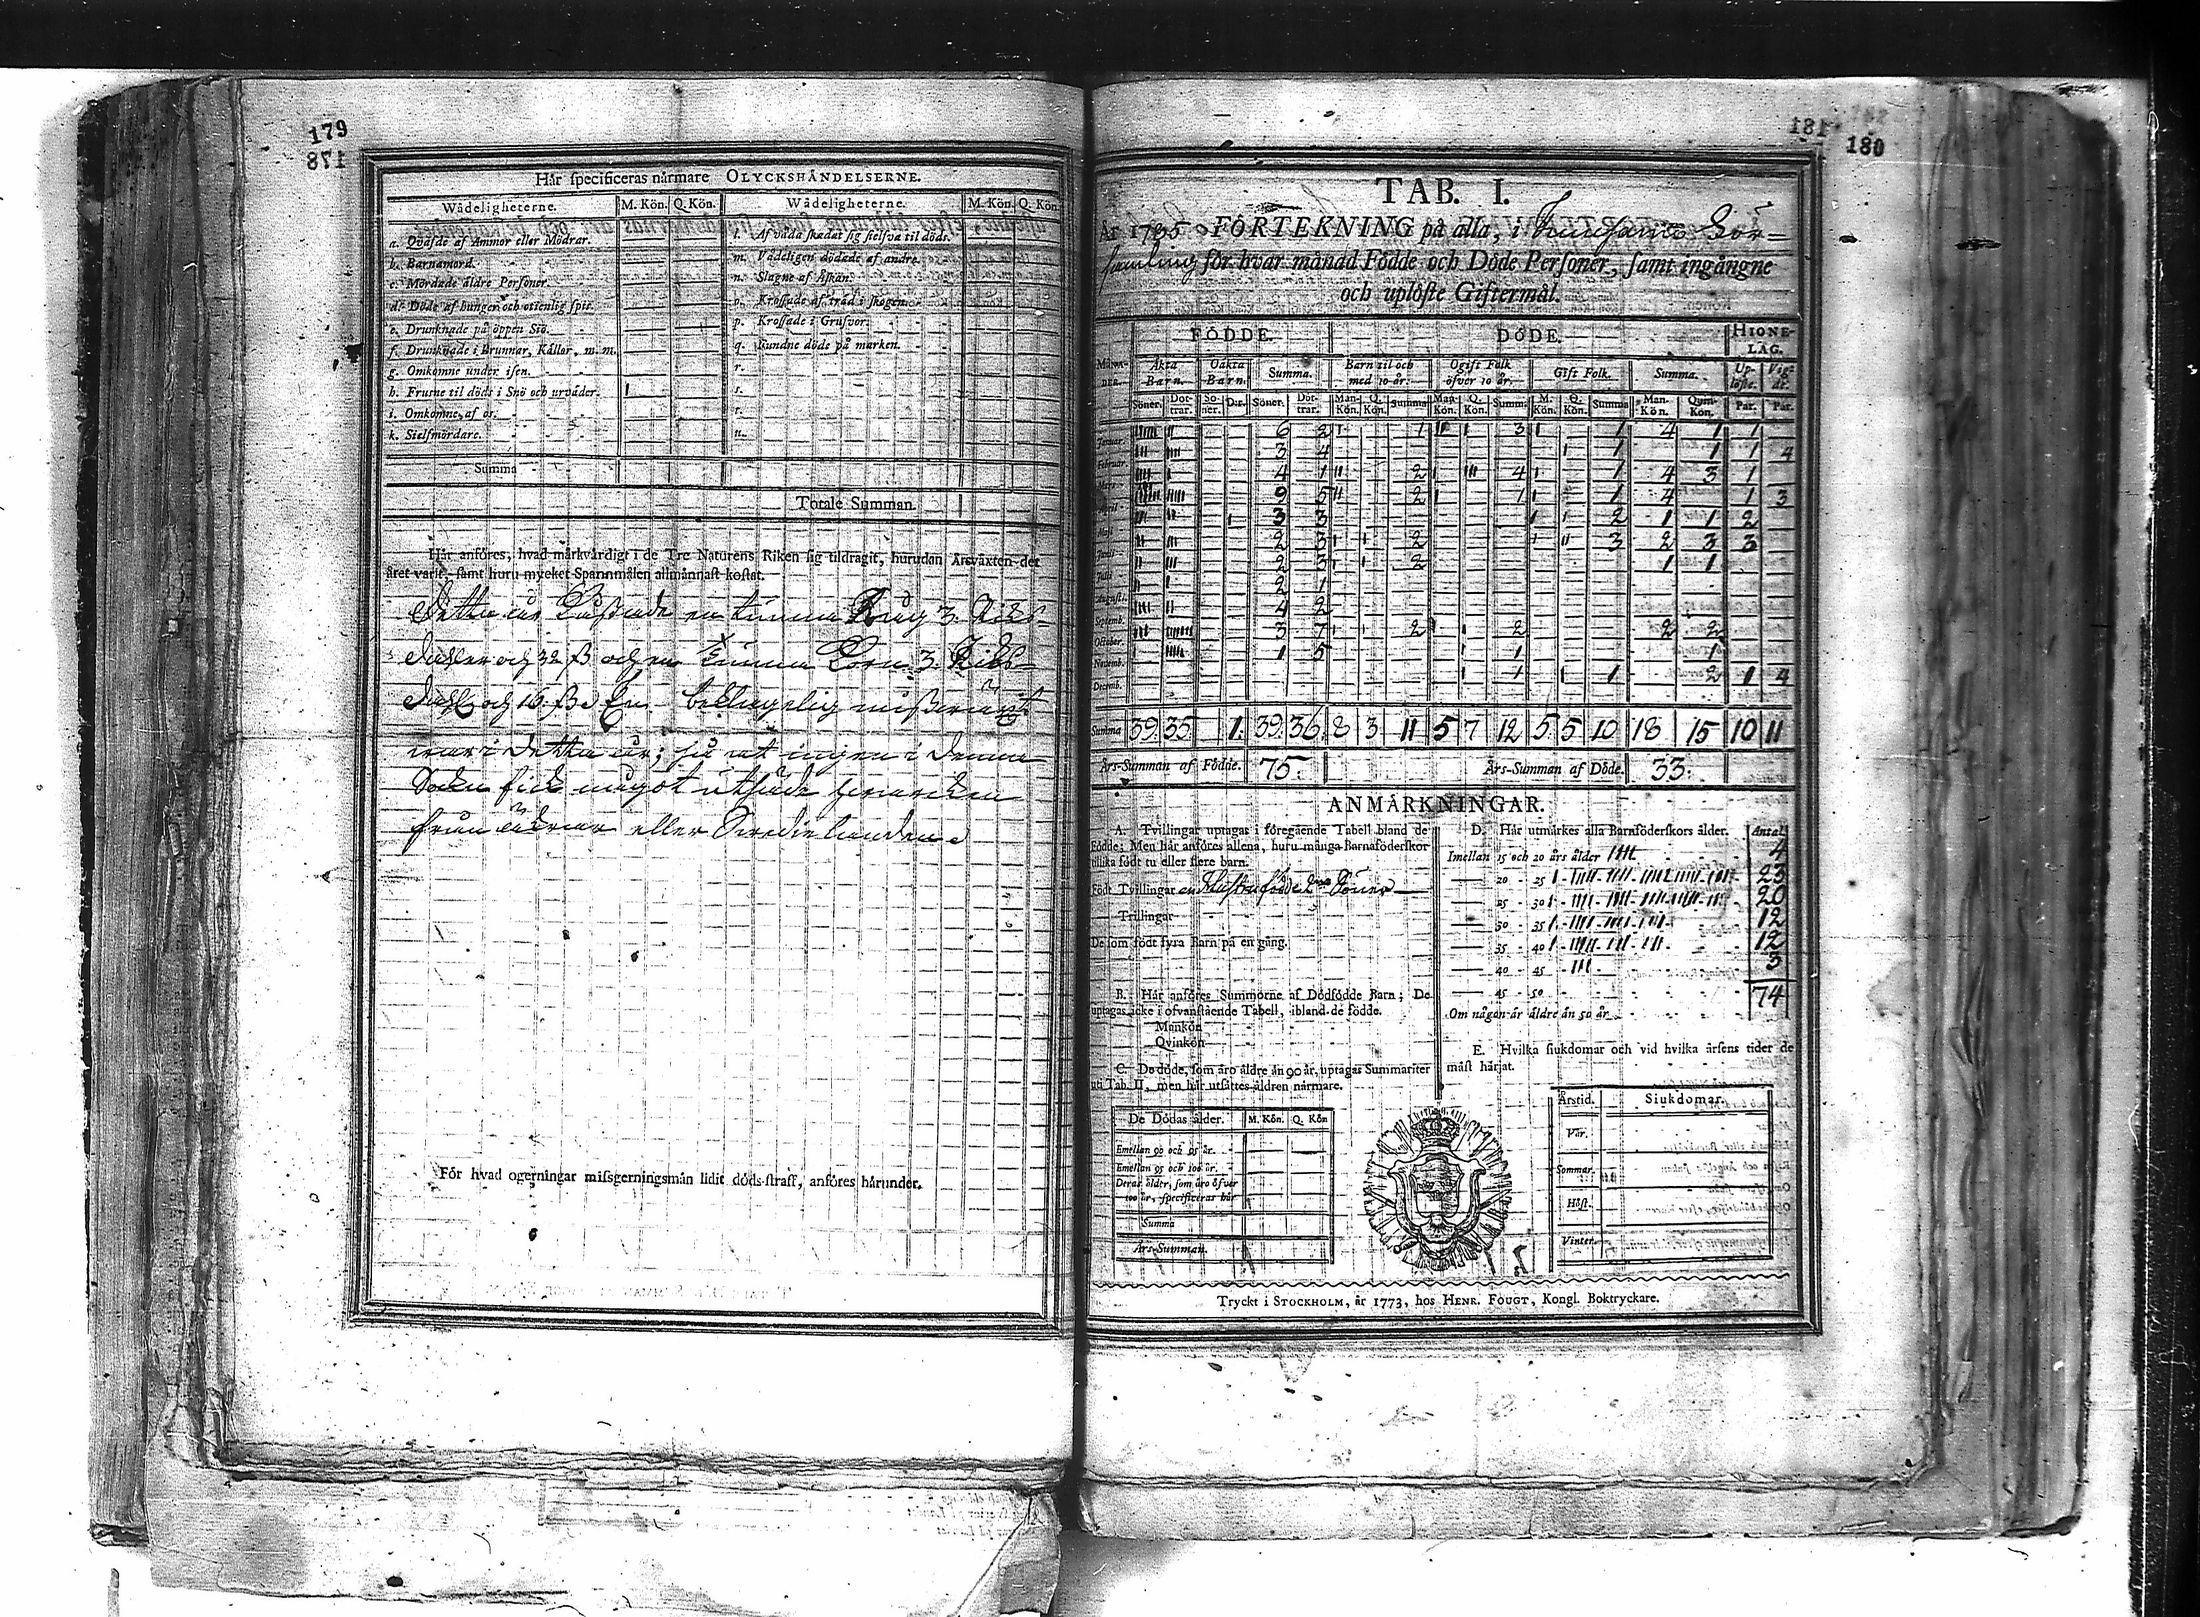 179
178
Hår specificeras nårmare OLYCKSHÅNDELSERNE.
Wådeligheterne. M. Kön. Q. Kön. Wådeligheterne. M. Kön. Q. Kön.
a. Qvåfde af Ammor eller Mödrar. l. Af våda skadat sig sielfva til döds.
b. Barnamord. m. Vådeligen dödade af andre.
c. Mördade åldre Personer. n. Slagne af Åskan.
d. Döde af hunger och otienlig spis. o. Krossade af tråd i skogen.
e. Drunknade på öppen Siö. p. Krossade i Grufvor.
f. Drunknade i Brunnar, Kållor, m. m. q. Fundne döde på marken.
g. Omkomne under isen. r.
h. Frusne til döds i Snö och urvåder. 1 s.
i. Omkomne af os. t.
k. Sielfmördare. u.
Summa
Totale Summan.
Hår anföres, hvad mårkvårdigt i de Tre Naturens Riken sig tildragit, hurudan Årsvåxten det
året varit, samt huru mycket Spannmålen allmånnast kostat.
Detta år kostade en tunna Råg 3. Riks-
daler och 32 ß och en tunna Korn 3 Riks-
dal och 16 ß. En beklagelig missvåxt
war i detta år; så at ingen i denna
Socken fick något utsåde hwarcken
från åkrar eller Swedielanden.
För hvad ogerningar missgerningsmån lidit döds-straff, anföres hårunder.
181
180
TAB. I.
År 1785 FÖRTEKNING på alla, i För-
samling för hvar månad Födde och Döde Personer, samt ingångne
och uplöste Giftermål.
FÖDDE. DÖDE. HIONE-LAG.
MÅNADER. Åkta Barn. Oåkta Barn. Summa. Barn til och med 10 år. Ogift Folk öfver 10 år. Gift Folk. Summa. Uplöste. Vigde.
Söner. Döttrar. Söner. Dr. Söner. Döttrar. Man-Kön. Q. Kön. Summa Man-Kön. Q. Kön. Summ. M. Kön. Q. Kön. Summa Man-Kön. Qvin-Kön. Par. Par.
Januar. 6 2 1 3 1 4 1 1
Februar. 3 4 1 1 1 4
Mars 4 1 2 4 1 4 3 1
April 9 5 2 1 1 4 1 3
Maji 3 3 2 1 1 2
Junii 2 3 2 3 2 3 3
Julii 2 3 2 1 1
Augusti. 2 1
Septemb. 4 2
October. 3 7 2 2 2 2
Novemb. 1 5 1 1
Decemb. 1 1 2 1 4
Summa 39 35 1. 39 36 8 3 11 5 7 12 5 5 10 18 15 10 11
Års-Summan af Födde. 75. Års-Summan af Döde. 33.
ANMÅRKNINGAR.
A. Tvillingar uptagas iföregående Tabell bland de
Födde; Men hår anföres allena, huru många Barnaföderskor
tillika födt tu eller flere barn.
Födt Tvillingar en Hustru födde 2ne Söner
Trillingar
De som födt fyra Barn på en gång.
B. Hår anföres Summorne af Dödfödde Barn; De
uptagas icke i ofvanstående Tabell, ibland de födde.
Mankön
Qvinkön
C. De döde, som åro åldre ån 90 år, uptagas Summariter
uti Tab. II, men hår utsåttes åldren nårmare.
De Dödas ålder. M. Kön. Q. Kön
Emellan 90 och 95 år.
Emellan 95 och 100 år.
Deras ålder, som åro öfver
100 år, specificeras hår
Summa
Års-Summan.
D. Hår utmårkes alla Barnföderskors ålder. Antal
Imellan 15 och 20 års ålder 4
20 - 25 23
25 - 30 20
30 - 35 12
35 - 40 12
40 - 45 3
45 - 50
Om någon år åldre ån 50 år
74
E. Hvilka siukdomar och vid hvilka årsens tider de
måst hårjat.
Årstid. Siukdomar.
Vår.
Sommar.
Höst.
Vinter.
Tryckt i STOCKHOLM, år 1773, hos HENR. FOUGT, Kongl. Boktryckare.